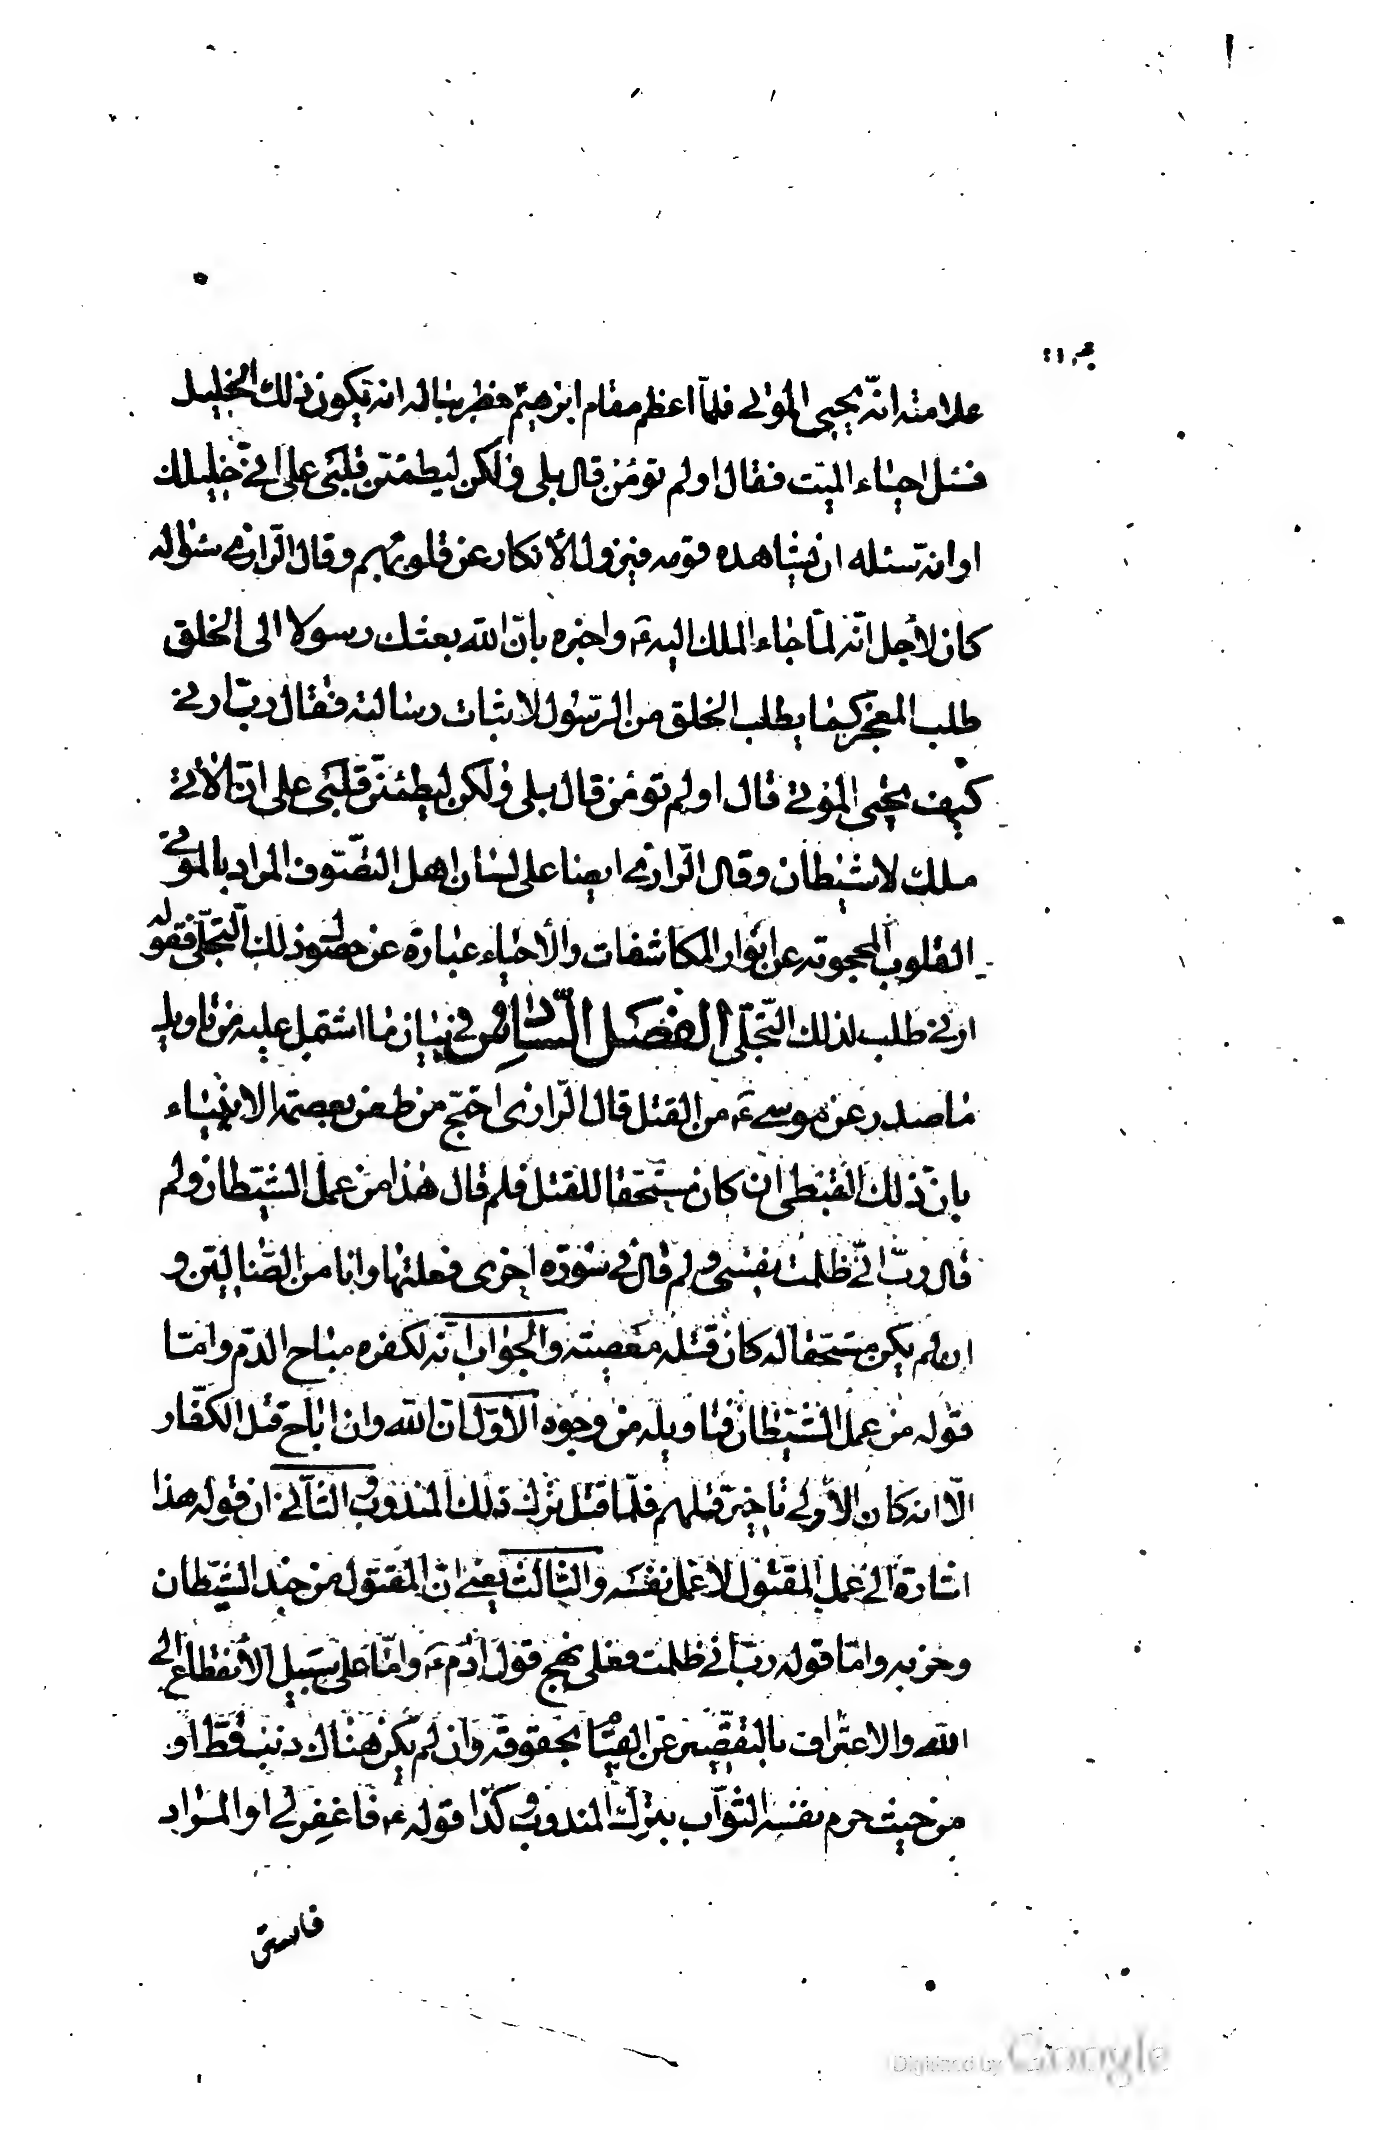 علامته انّه يحيي الموتى فلمّا اعظم مقام ابرهيمؑ خطر بباله انه يكون ذلك الخليل
فسئل احياء الميّت فقال اولم تؤمن قال بلى ولكن ليطمئن قلبى على انّى خليلك
او انه سئله ان يشاهده قومه فيزول الأنكار عن قلوبهم وقال الرازى سؤاله
كان لأجل انّه لمّا جاء الملك اليه ع واخبره بانّ الله بعثك رسولا الى الخلق
طلب المعجز كما يطلب الخلق من الرّسول لاثبات رسالته فقال ربّ ارنى
كيف تحيى الموتى قال اولم تؤمن قال بلى ولكن ليطمئنّ قلبى على انّ الأتى
ملك لا شيطان وقال الرازى ايضا على لسان اهل التصّوف المراد بالموتى
القلوب المحجوبة عن انوار المكاشفات والأحياء عبارة عن حصول ذلك التجلّى فقوله
ارنى طلب لذلك التّجلّى الفصل السّادس فى بيان ما اشتمل عليه من تاويل
ما صدر عن موسى ع من القتل قال الرّازى احتجّ من طعن بعصمة الانبياء
بانّ ذلك القبطى ان كان مستحقا للقتل فلم قال هذا من عمل الشيطان ولم
قال ربّ انّى ظلمت نفسى ولم قال فى سورة اخرى فعلتها وانا من الضّالّين و
ان لم يكن مستحقا له كان قتله معصية والجواب انه لكفره مباح الدّم وامّا
قوله من عمل الشّيطان فتاويله من وجوه الأوّل انّ الله وان اباح قتل الكفّار
الّا انه كان الأولى تاخير قتلهم فلمّا قتل ترك ذلك المندوب والثّانى ان قوله هذا
اشارة الى عمل المقتول لا عمل نفسه والثالث يعنى انّ المقتول من جند الشّيطان
وحزبه وامّا قوله ربّ انّى ظلمت فعلى نهج قول ادم ع وامّا على سبيل الأنقطاع الى
الله والاعتراف بالتقصير عن القيام بحقوقه وان لم يكن هناك ذنب قطّ او
من حيث حرم نفسه الثوّاب بترك المندوب وكذا قوله ع فاغفر لى او المراد